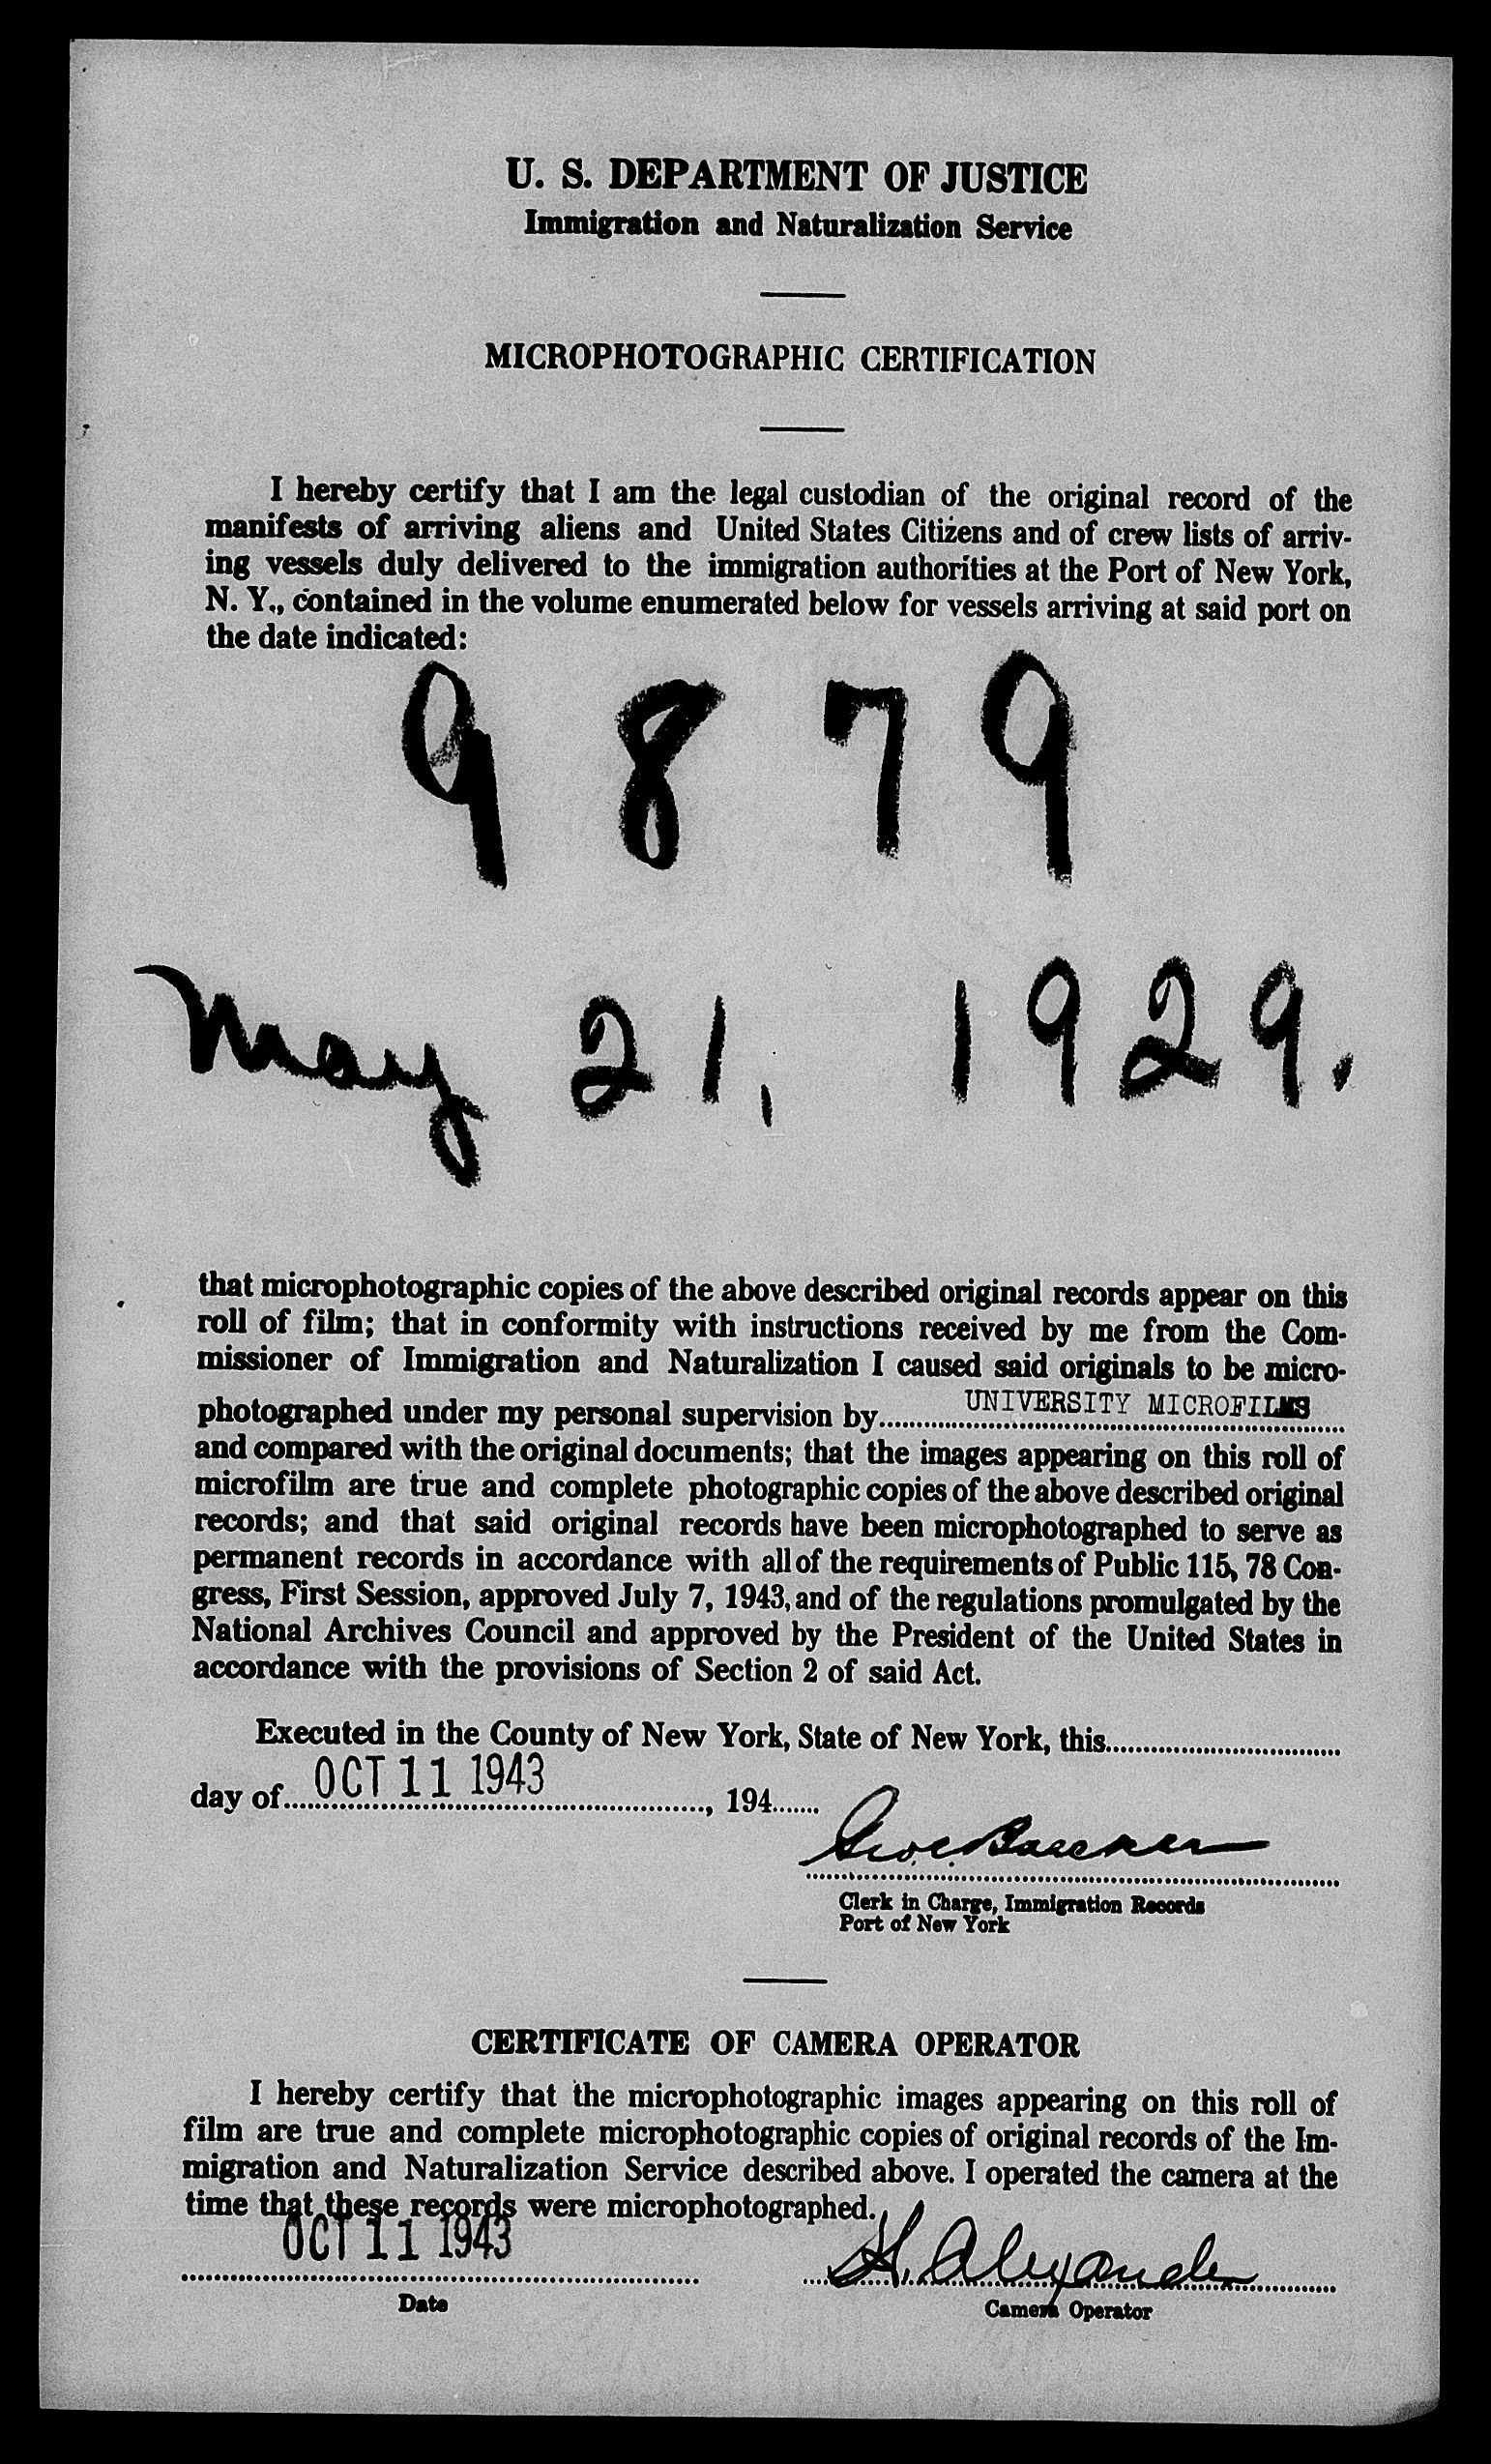 U. S. DEPARTMENT OF JUSTICE
Immigration and Naturalization Service
MICROPHOTOGRAPHIC CERTIFICATION
I hereby certify that I am the legal custodian of the original record of the
manifests of arriving aliens and United States Citizens and of crew lists of arriv-
ing vessels duly delivered to the immigration authorities at the Port of New York,
N. Y., contained in the volume enumerated below for vessels arriving at said port on
the date indicated:
9879
May 21, 1929.
that microphotographic copies of the above described original records appear on this
roll of film; that in conformity with instructions received by me from the Com-
missioner of Immigration and Naturalization I caused said originals to be micro-
photographed under my personal supervision by UNIVERSITY MICROFILMS
and compared with the original documents; that the images appearing on this roll of
microfilm are true and complete photographic copies of the above described original
records; and that said original records have been microphotographed to serve as
permanent records in accordance with all of the requirements of Public 115, 78 Con-
gress, First Session, approved July 7, 1943, and of the regulations promulgated by the
National Archives Council and approved by the President of the United States in
accordance with the provisions of Section 2 of said Act.
Executed in the County of New York, State of New York, this
day of OCT 11 1943, 194
Clerk in Charge, Immigration Records
Port of New York
CERTIFICATE OF CAMERA OPERATOR
I hereby certify that the microphotographic images appearing on this roll of
film are true and complete microphotographic copies of original records of the Im-
migration and Naturalization Service described above. I operated the camera at the
time that these records were microphotographed.
OCT 11 1943 H. Alexander
Date Camera Operator